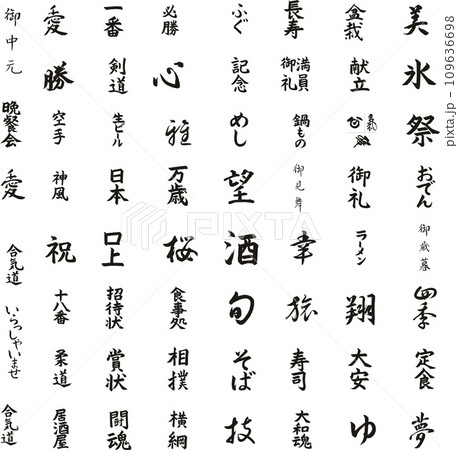 御中元 愛 一番 必勝 ふぐ 長寿 盆栽 美
勝 剣道 心 記念 満員御礼 献立 氷
晩餐会 空手 生ビール 雅 めし 鍋もの 祭
愛 神風 日本 万歳 望 御見舞 御礼 おでん
合気道 祝 口上 桜 酒 幸 ラーメン 御歳暮
いらっしゃいませ 十八番 招待状 食事処 旬 旅 翔 四季
柔道 賞状 相撲 そば 寿司 大安 定食
合気道 居酒屋 闘魂 横綱 技 大和魂 ゆ 夢
PIXTA
pixta.jp - 109636698